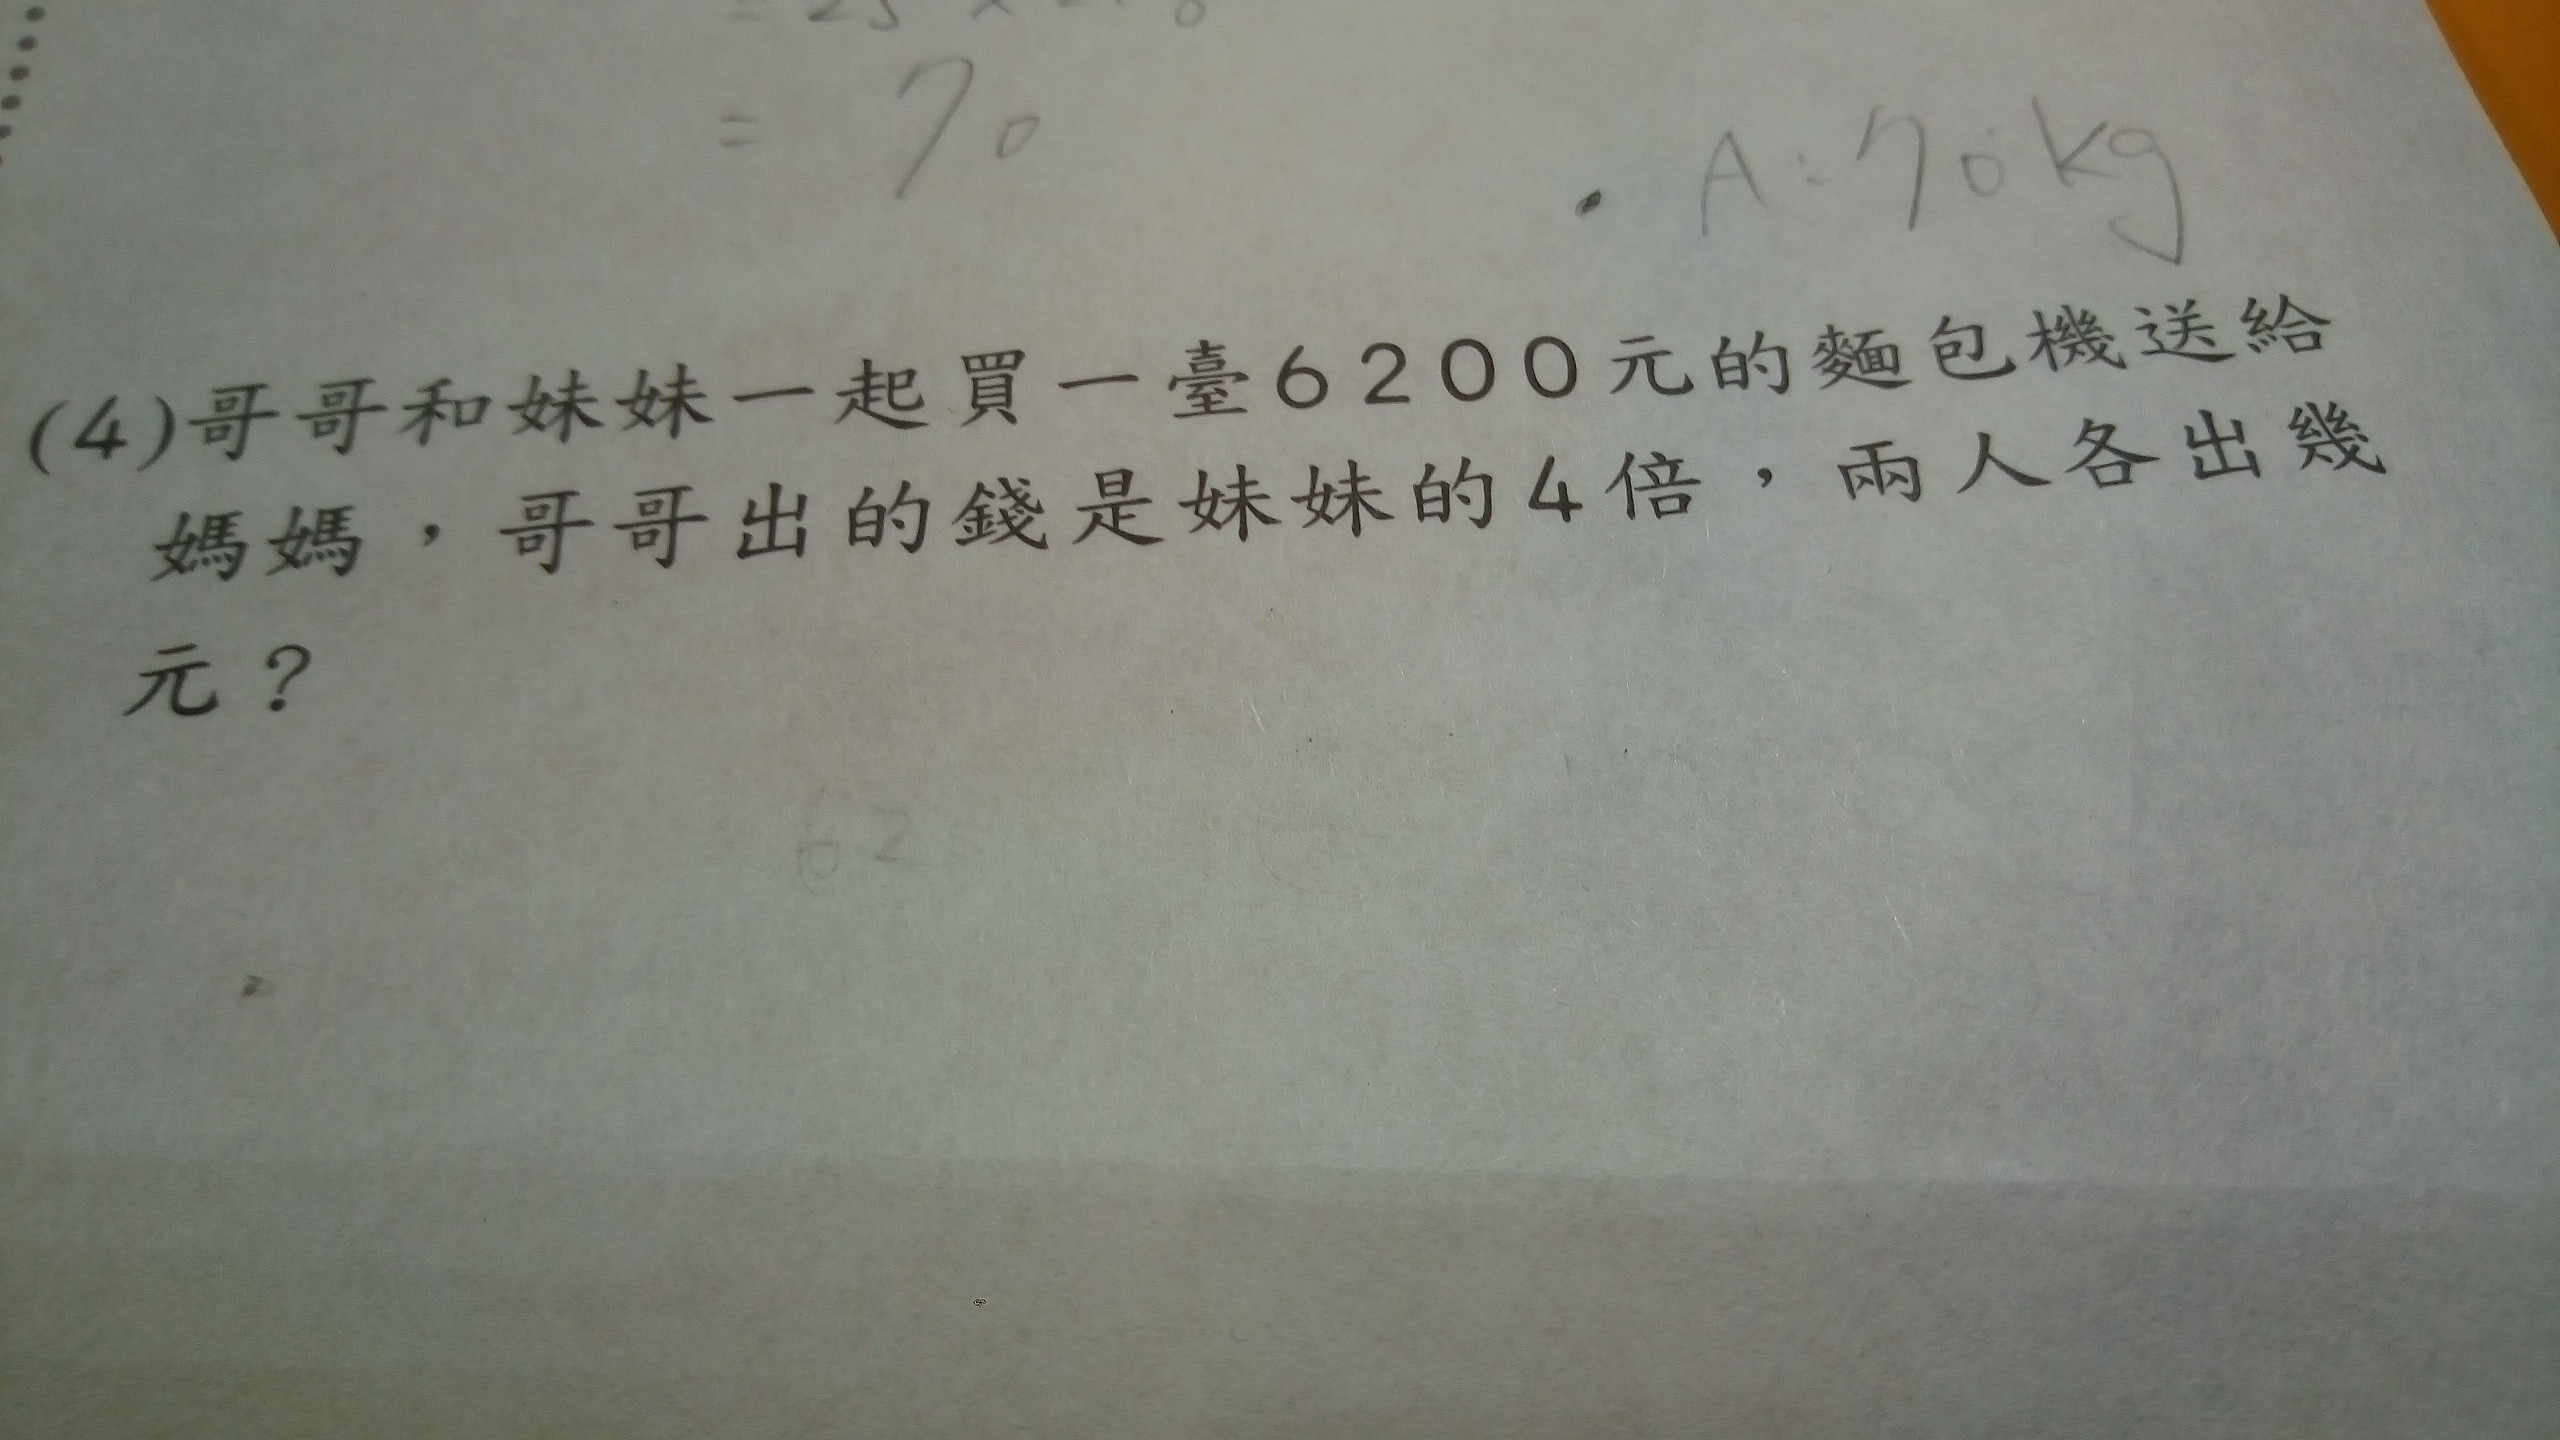 = 70
A:70kg
(4)哥哥和妹妹一起買一臺6200元的麵包機送給
媽媽，哥哥出的錢是妹妹的4倍，兩人各出幾
元？
62